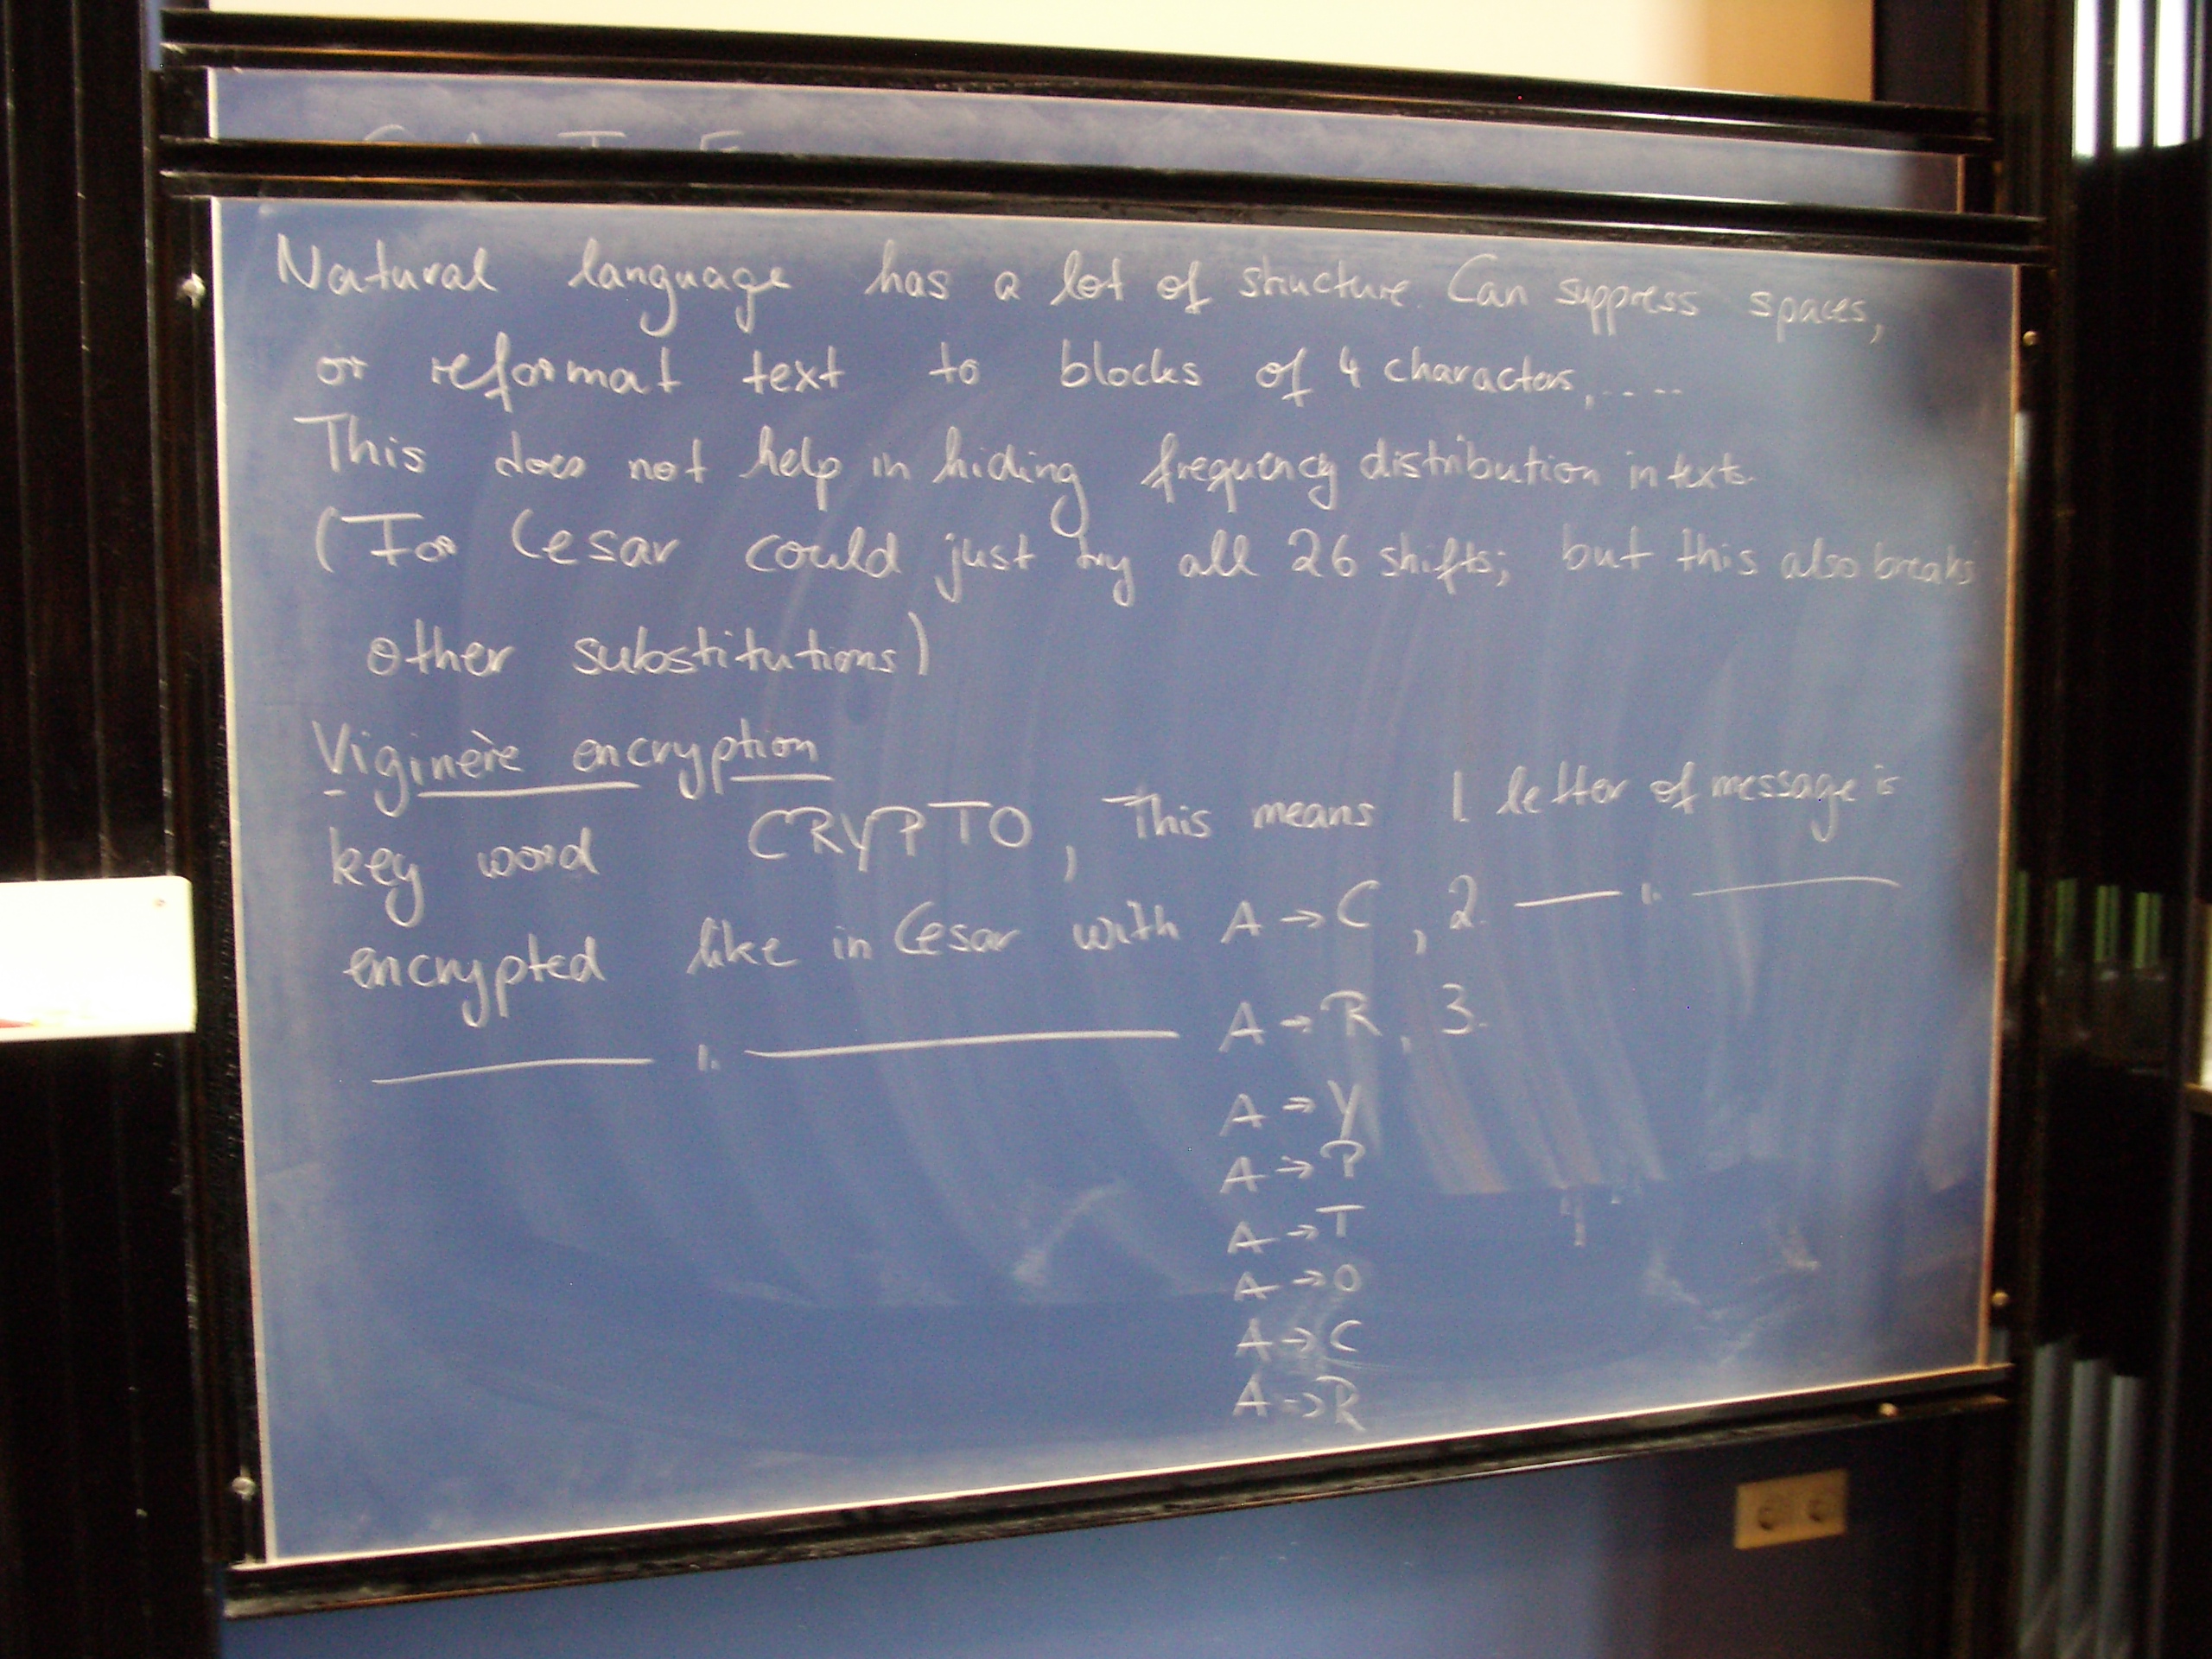 Natural language has a lot of structure. Can suppress spaces,
or reformat text to blocks of 4 characters, .....
This does not help in hiding frequency distribution in texts.
(For Cesar could just try all 26 shifts; but this also breaks
other substitutions)
Viginère encryption
key word CRYPTO, This means 1. letter of message is
encrypted like in Cesar with A → C, 2. — " —
— " — A → R, 3.
A → Y
A → P
A → T
A → O
A → C
A → R